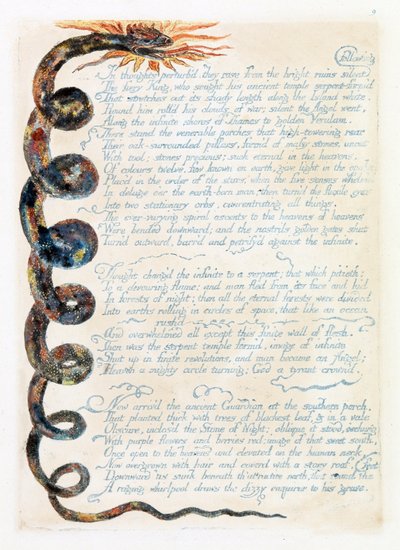 9
Following
In thoughts perturb'd, they rose from the bright ruins silent
The fiery King, who sought his ancient temple serpent-form'd
That stretches out its shady length along the Island white.
Round him roll'd his clouds of war; silent the Angel went,
Along the infinite shores of Thames to golden Verulam.
There stand the venerable porches that high-towering rear
Their oak-surrounded pillars, form'd of massy stones, uncut
With tool; stones precious; such eternal in the heavens,
Of colours twelve, few known on earth, give light in the opake,
Plac'd in the order of the stars, when the five senses whelm'd
In deluge o'er the earth-born man; then turn'd the fluxile eyes
Into two stationary orbs, concentrating all things.
The ever-varying spiral ascents to the heavens of heavens
Were bended downward; and the nostrils golden gates shut
Turn'd outward, barr'd and petrify'd against the infinite.
Thought chang'd the infinite to a serpent; that which pitieth:
To a devouring flame; and man fled from its face and hid
In forests of night; then all the eternal forests were divided
Into earths rolling in circles of space, that like an ocean
rush'd
And overwhelmed all except this finite wall of flesh.
Then was the serpent temple form'd, image of infinite
Shut up in finite revolutions, and man became an Angel;
Heaven a mighty circle turning; God a tyrant crown'd.
Now arriv'd the ancient Guardian at the southern porch,
That planted thick with trees of blackest leaf, & in a vale
Obscure, inclos'd the Stone of Night; oblique it stood, o'erhung
With purple flowers and berries red; image of that sweet south,
Once open to the heavens and elevated on the human neck,
Now overgrown with hair and cover'd with a stony roof.
Downward 'tis sunk beneath th' attractive north, that round the feet
A raging whirlpool draws the dizzy enquirer to his grave.